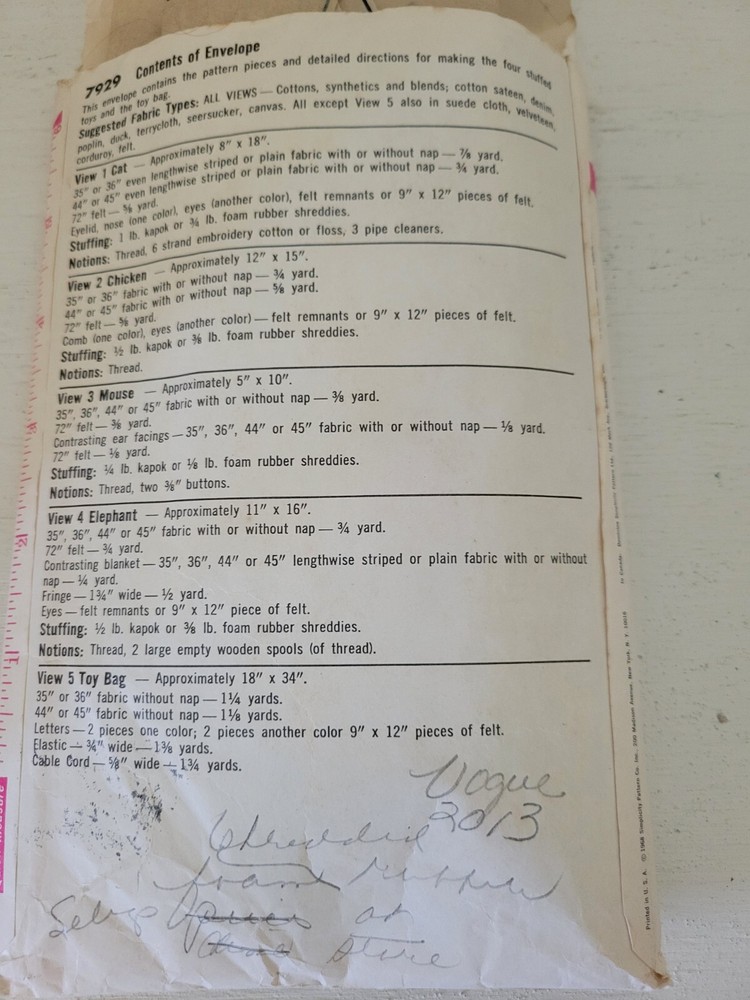 7929 Contents of Envelope
This envelope contains the pattern pieces and detailed directions for making the four stuffed
toys and the toy bag.
Suggested Fabric Types: ALL VIEWS — Cottons, synthetics and blends; cotton sateen, denim,
poplin, duck, terrycloth, seersucker, canvas. All except View 5 also in suede cloth, velveteen,
corduroy, felt.
View 1 Cat — Approximately 8" x 18".
35" or 36" even lengthwise striped or plain fabric with or without nap — ⅞ yard.
44" or 45" even lengthwise striped or plain fabric with or without nap — ¾ yard.
72" felt — ⅝ yard.
Eyelid, nose (one color), eyes (another color), felt remnants or 9" x 12" pieces of felt.
Stuffing: 1 lb. kapok or ¾ lb. foam rubber shreddies.
Notions: Thread, 6 strand embroidery cotton or floss, 3 pipe cleaners.
View 2 Chicken — Approximately 12" x 15".
35" or 36" fabric with or without nap — ¾ yard.
44" or 45" fabric with or without nap — ⅝ yard.
72" felt — ⅝ yard.
Comb (one color), eyes (another color) — felt remnants or 9" x 12" pieces of felt.
Stuffing: ½ lb. kapok or ⅜ lb. foam rubber shreddies.
Notions: Thread.
View 3 Mouse — Approximately 5" x 10".
35", 36", 44" or 45" fabric with or without nap — ⅜ yard.
72" felt — ⅜ yard.
Contrasting ear facings — 35", 36", 44" or 45" fabric with or without nap — ⅛ yard.
72" felt — ⅛ yard.
Stuffing: ¼ lb. kapok or ⅛ lb. foam rubber shreddies.
Notions: Thread, two ⅜" buttons.
View 4 Elephant — Approximately 11" x 16".
35", 36", 44" or 45" fabric with or without nap — ¾ yard.
72" felt — ¾ yard.
Contrasting blanket — 35", 36", 44" or 45" lengthwise striped or plain fabric with or without
nap — ¼ yard.
Fringe — 1¾" wide — ½ yard.
Eyes — felt remnants or 9" x 12" piece of felt.
Stuffing: ½ lb. kapok or ⅜ lb. foam rubber shreddies.
Notions: Thread, 2 large empty wooden spools (of thread).
View 5 Toy Bag — Approximately 18" x 34".
35" or 36" fabric without nap — 1¼ yards.
44" or 45" fabric without nap — 1⅛ yards.
Letters — 2 pieces one color; 2 pieces another color 9" x 12" pieces of felt.
Elastic — ¾" wide — 1⅜ yards.
Cable Cord — ⅝" wide — 1¾ yards.
Vogue
3013
foam rubber
at
store
Printed in U. S. A. © 1968 Simplicity Pattern Co. Inc. 200 Madison Avenue, New York, N. Y. 10016